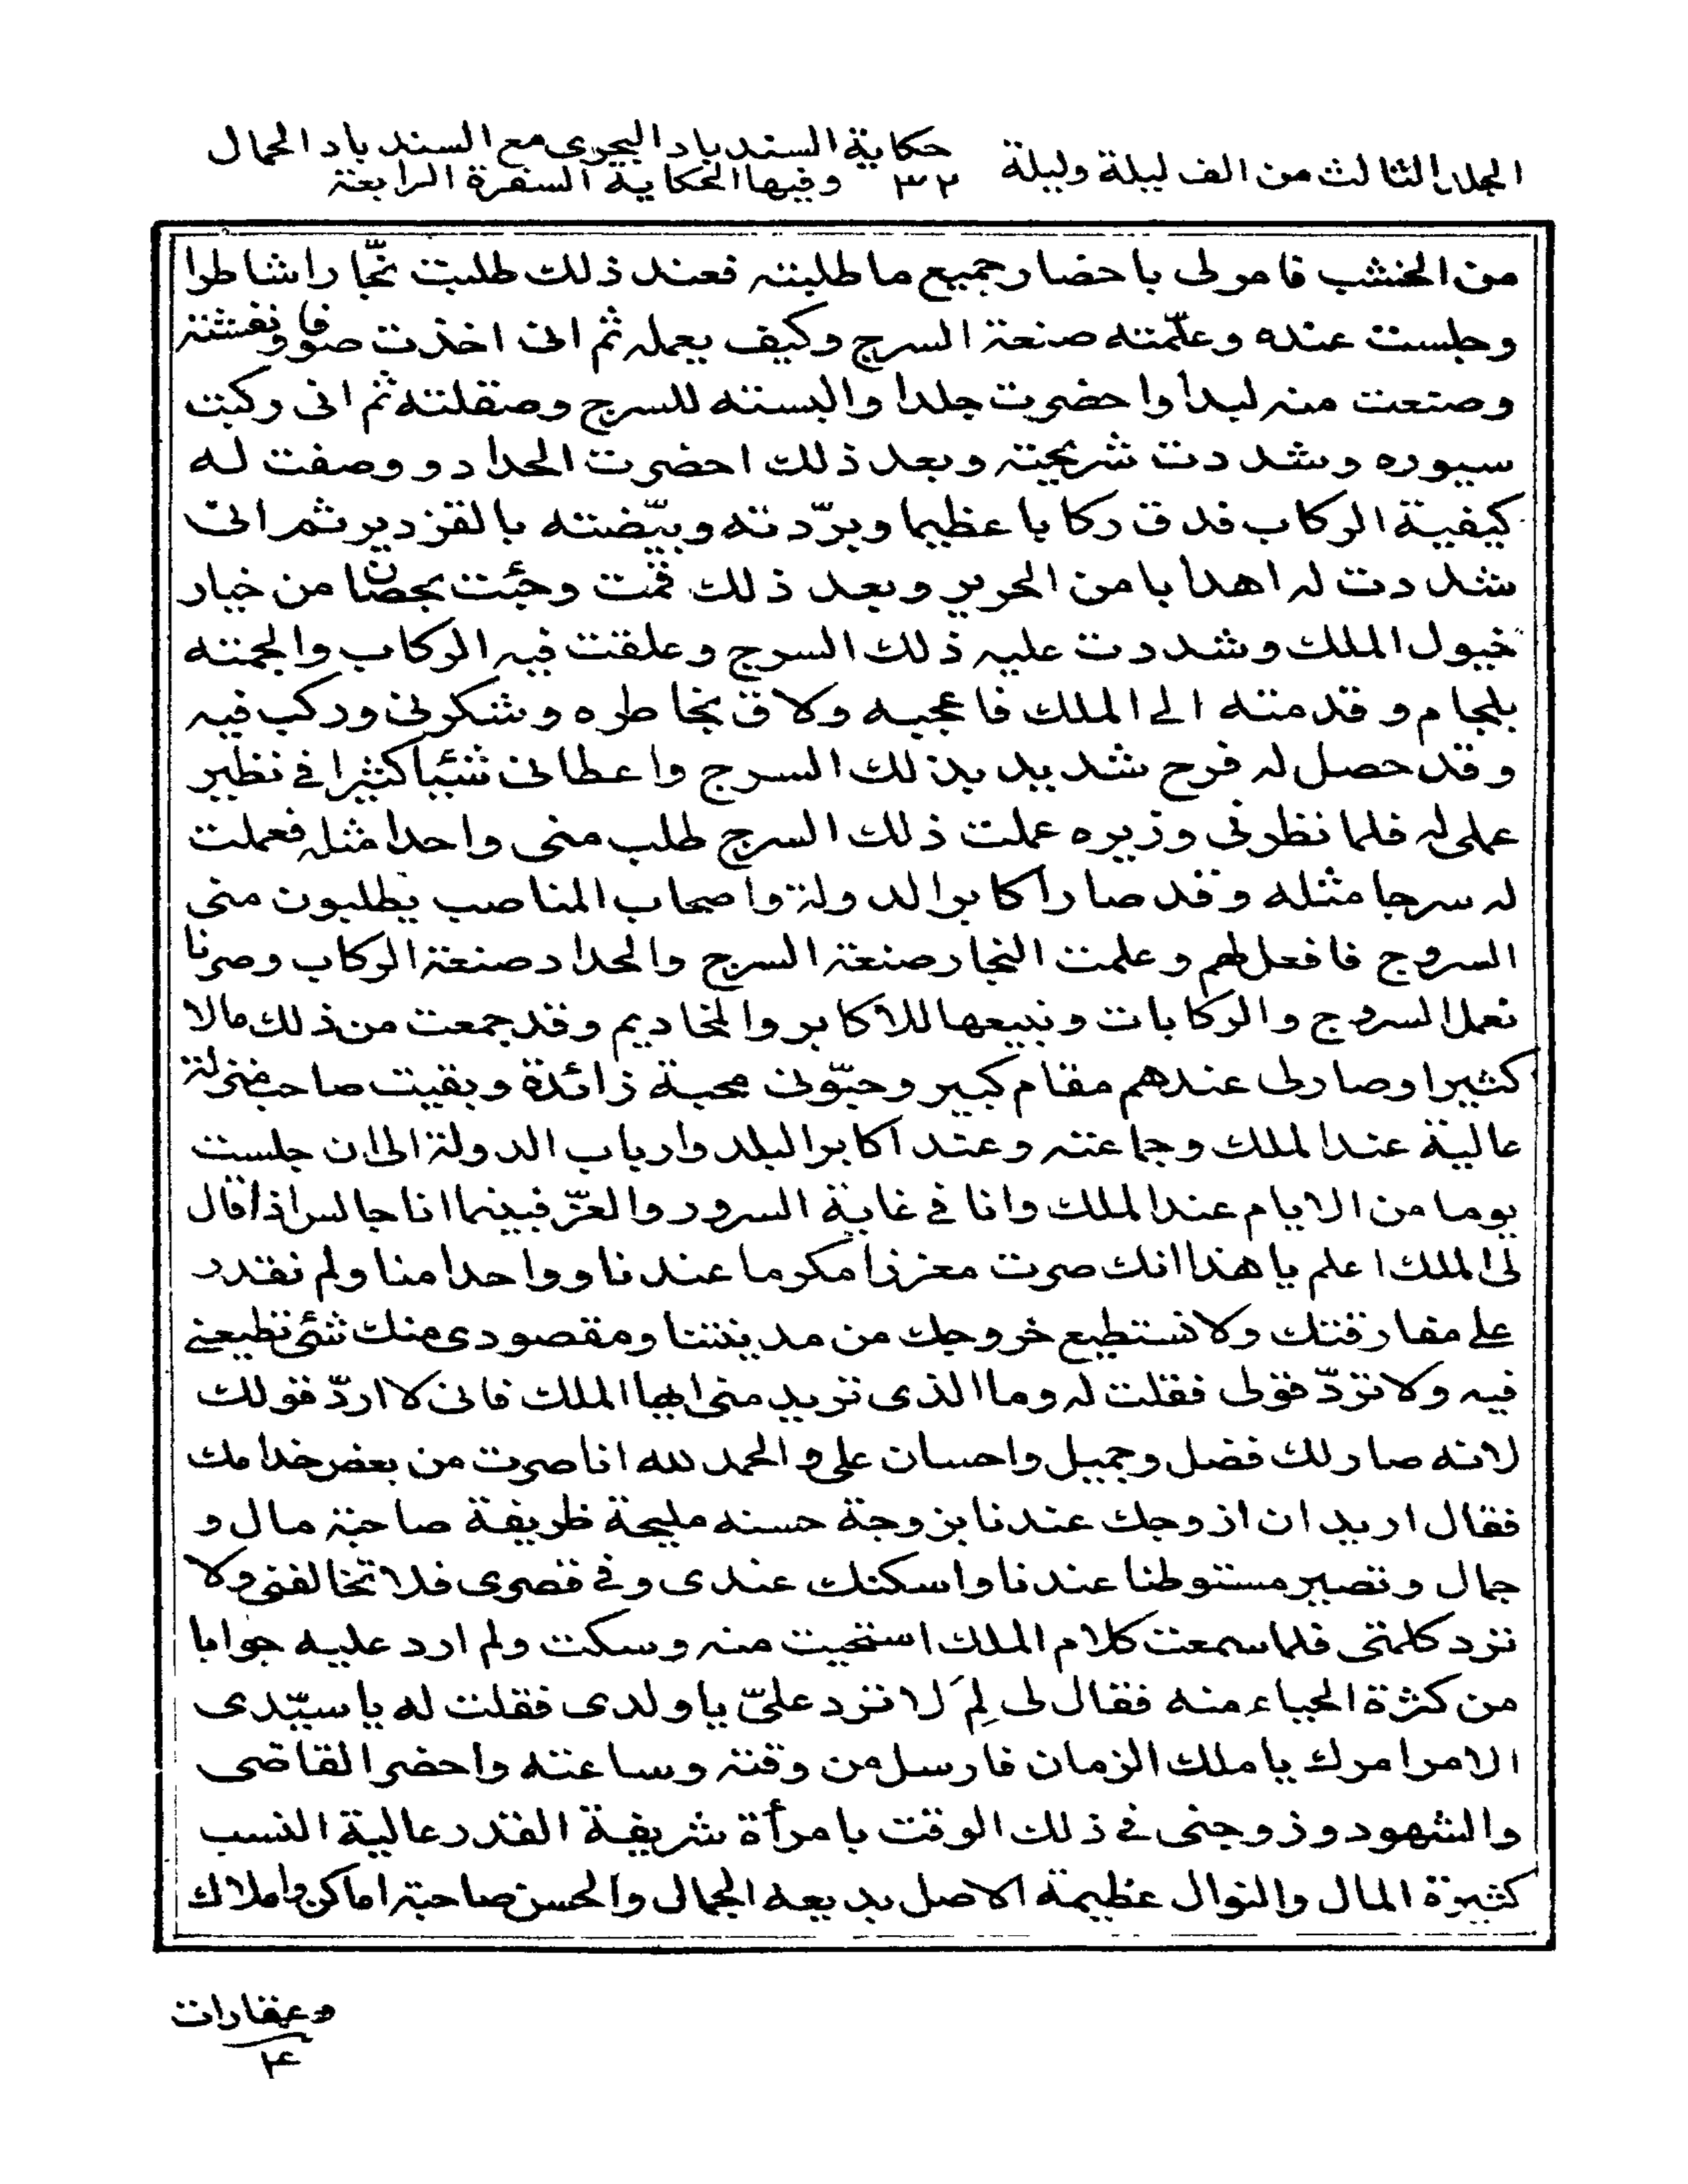 المجلد الثالث من الف ليلة وليلة ٣٢ حكاية السندباد البحرى مع السندباد الحمال
وفيها الحكاية السفرة الرابعة
من الخشب فامر لى باحضار جميع ما طلبته فعند ذلك طلبت نجّارا شاطرا
وجلست عنده وعلّمته صنعة السرج وكيف يعمله ثم انى اخذت صوفا ونفشته
وصنعت منه لبدا واحضرت جلدا والبسته للسرج وصقلته ثم انى ركبت
سيوره وشددت شريحته وبعد ذلك احضرت الحداد و وصفت له
كيفية الركاب فدق ركابا عظيما وبرّدته وبيّضته بالقزدير ثم انى
شددت له اهدابا من الحرير وبعد ذلك قمت وجئت بحصان من خيار
خيول الملك وشددت عليه ذلك السرج وعلقت فيه الركاب والجمته
بلجام وقدمته الى الملك فاعجبه ولاق بخاطره وشكرنى وركب فيه
وقد حصل له فرح شديد بذلك السرج واعطانى شئيا كثيرا فى نظير
عملى له فلما نظرنى وزيره عملت ذلك السرج طلب منى واحدا مثله فعملت
له سرجا مثله وقد صار اكابر الدولة واصحاب المناصب يطلبون منى
السروج فافعل لهم وعلمت النجار صنعة السرج والحداد صنعة الركاب وصرنا
نعمل السروج والركابات ونبيعها للاكابر والمخاديم وقد جمعت من ذلك مالا
كثيرا وصار لى عندهم مقام كبير وحبّونى محبة زائدة وبقيت صاحب منزلة
عالية عند الملك وجماعته وعند اكابر البلد وارباب الدولة الى ان جلست
يوما من الايام عند الملك وانا فى غاية السرور والعزّ فبينما انا جالس اذ قال
لى الملك اعلم يا هذا انك صرت معززا مكرما عندنا وواحدا منا ولم نقدر
على مفارقتك ولا نستطيع خروجك من مدينتنا ومقصودى منك شئ تطيعنى
فيه ولا تردّ قولى فقلت له وما الذى تريد منى ايها الملك فانى لا اردّ قولك
لانه صار لك فضل وجميل واحسان على و الحمد لله انا صرت من بعض خدامك
فقال اريد ان ازوجك عندنا بزوجة حسنه مليحة ظريفة صاحبة مال و
جمال وتصير مستوطنا عندنا واسكنك عندى وفى قصرى فلا تخالفنى ولا
ترد كلمتى فلما سمعت كلام الملك استحيت منه وسكت ولم ارد عليه جوابا
من كثرة الحياء منه فقال لى لِمَ لا ترد علىّ يا ولدى فقلت له يا سيّدى
الامر امرك يا ملك الزمان فارسل من وقته وساعته واحضر القاضى
والشهود وزوجنى فى ذلك الوقت بامرأة شريفة القدر عالية النسب
كثيرة المال والنوال عظيمة الاصل بديعه الجمال والحسن صاحبة اماكن واملاك
وعقارات
٤